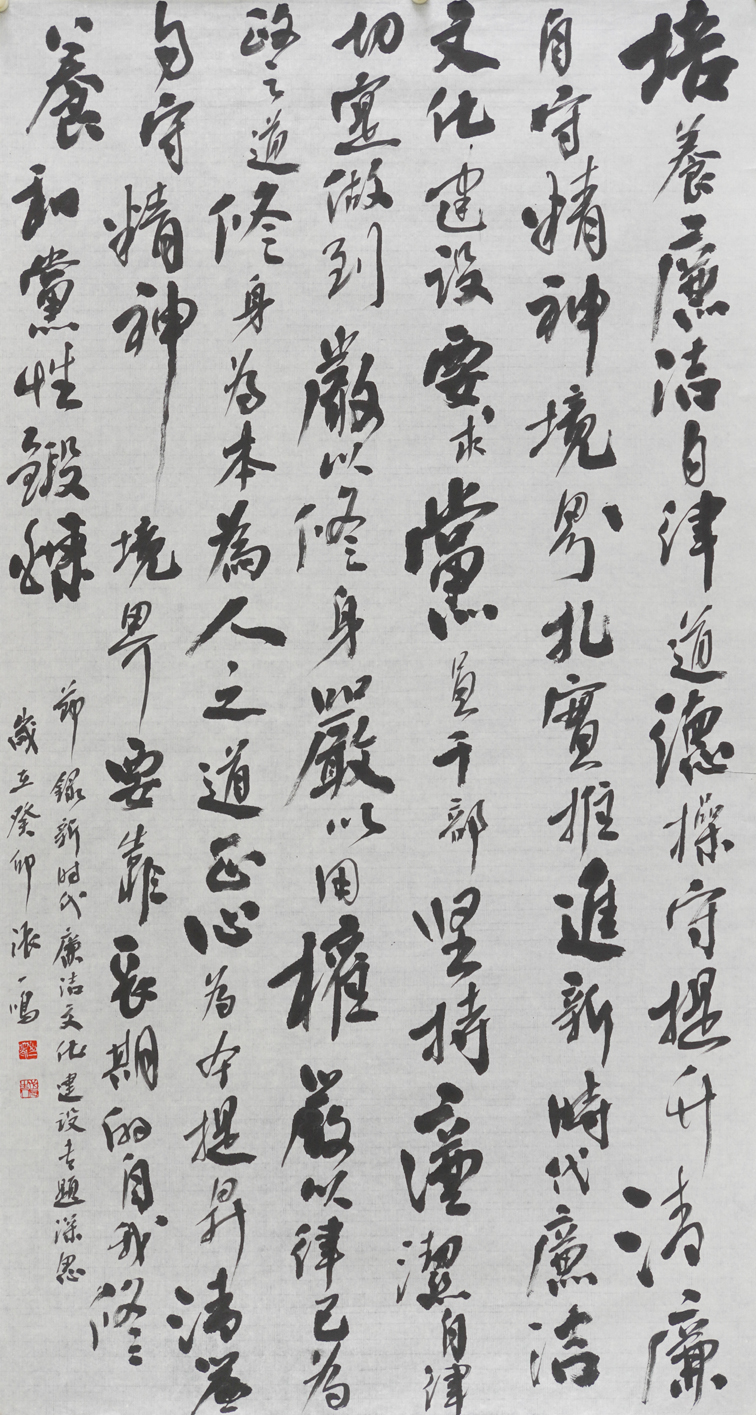 培養廉洁自律道德操守提升清廉
自守精神境界扎實推進新時代廉洁
文化建设要求黨員干部坚持廉潔自律
切寔做到嚴以修身嚴以用權嚴以律己为
政之道修身为本為人之道正心為本提昇清
自守精神境界要靠長期的自我修
養和黨性鍛鍊
節録新时代廉洁文化建设专题深思
歲在癸卯張一鳴